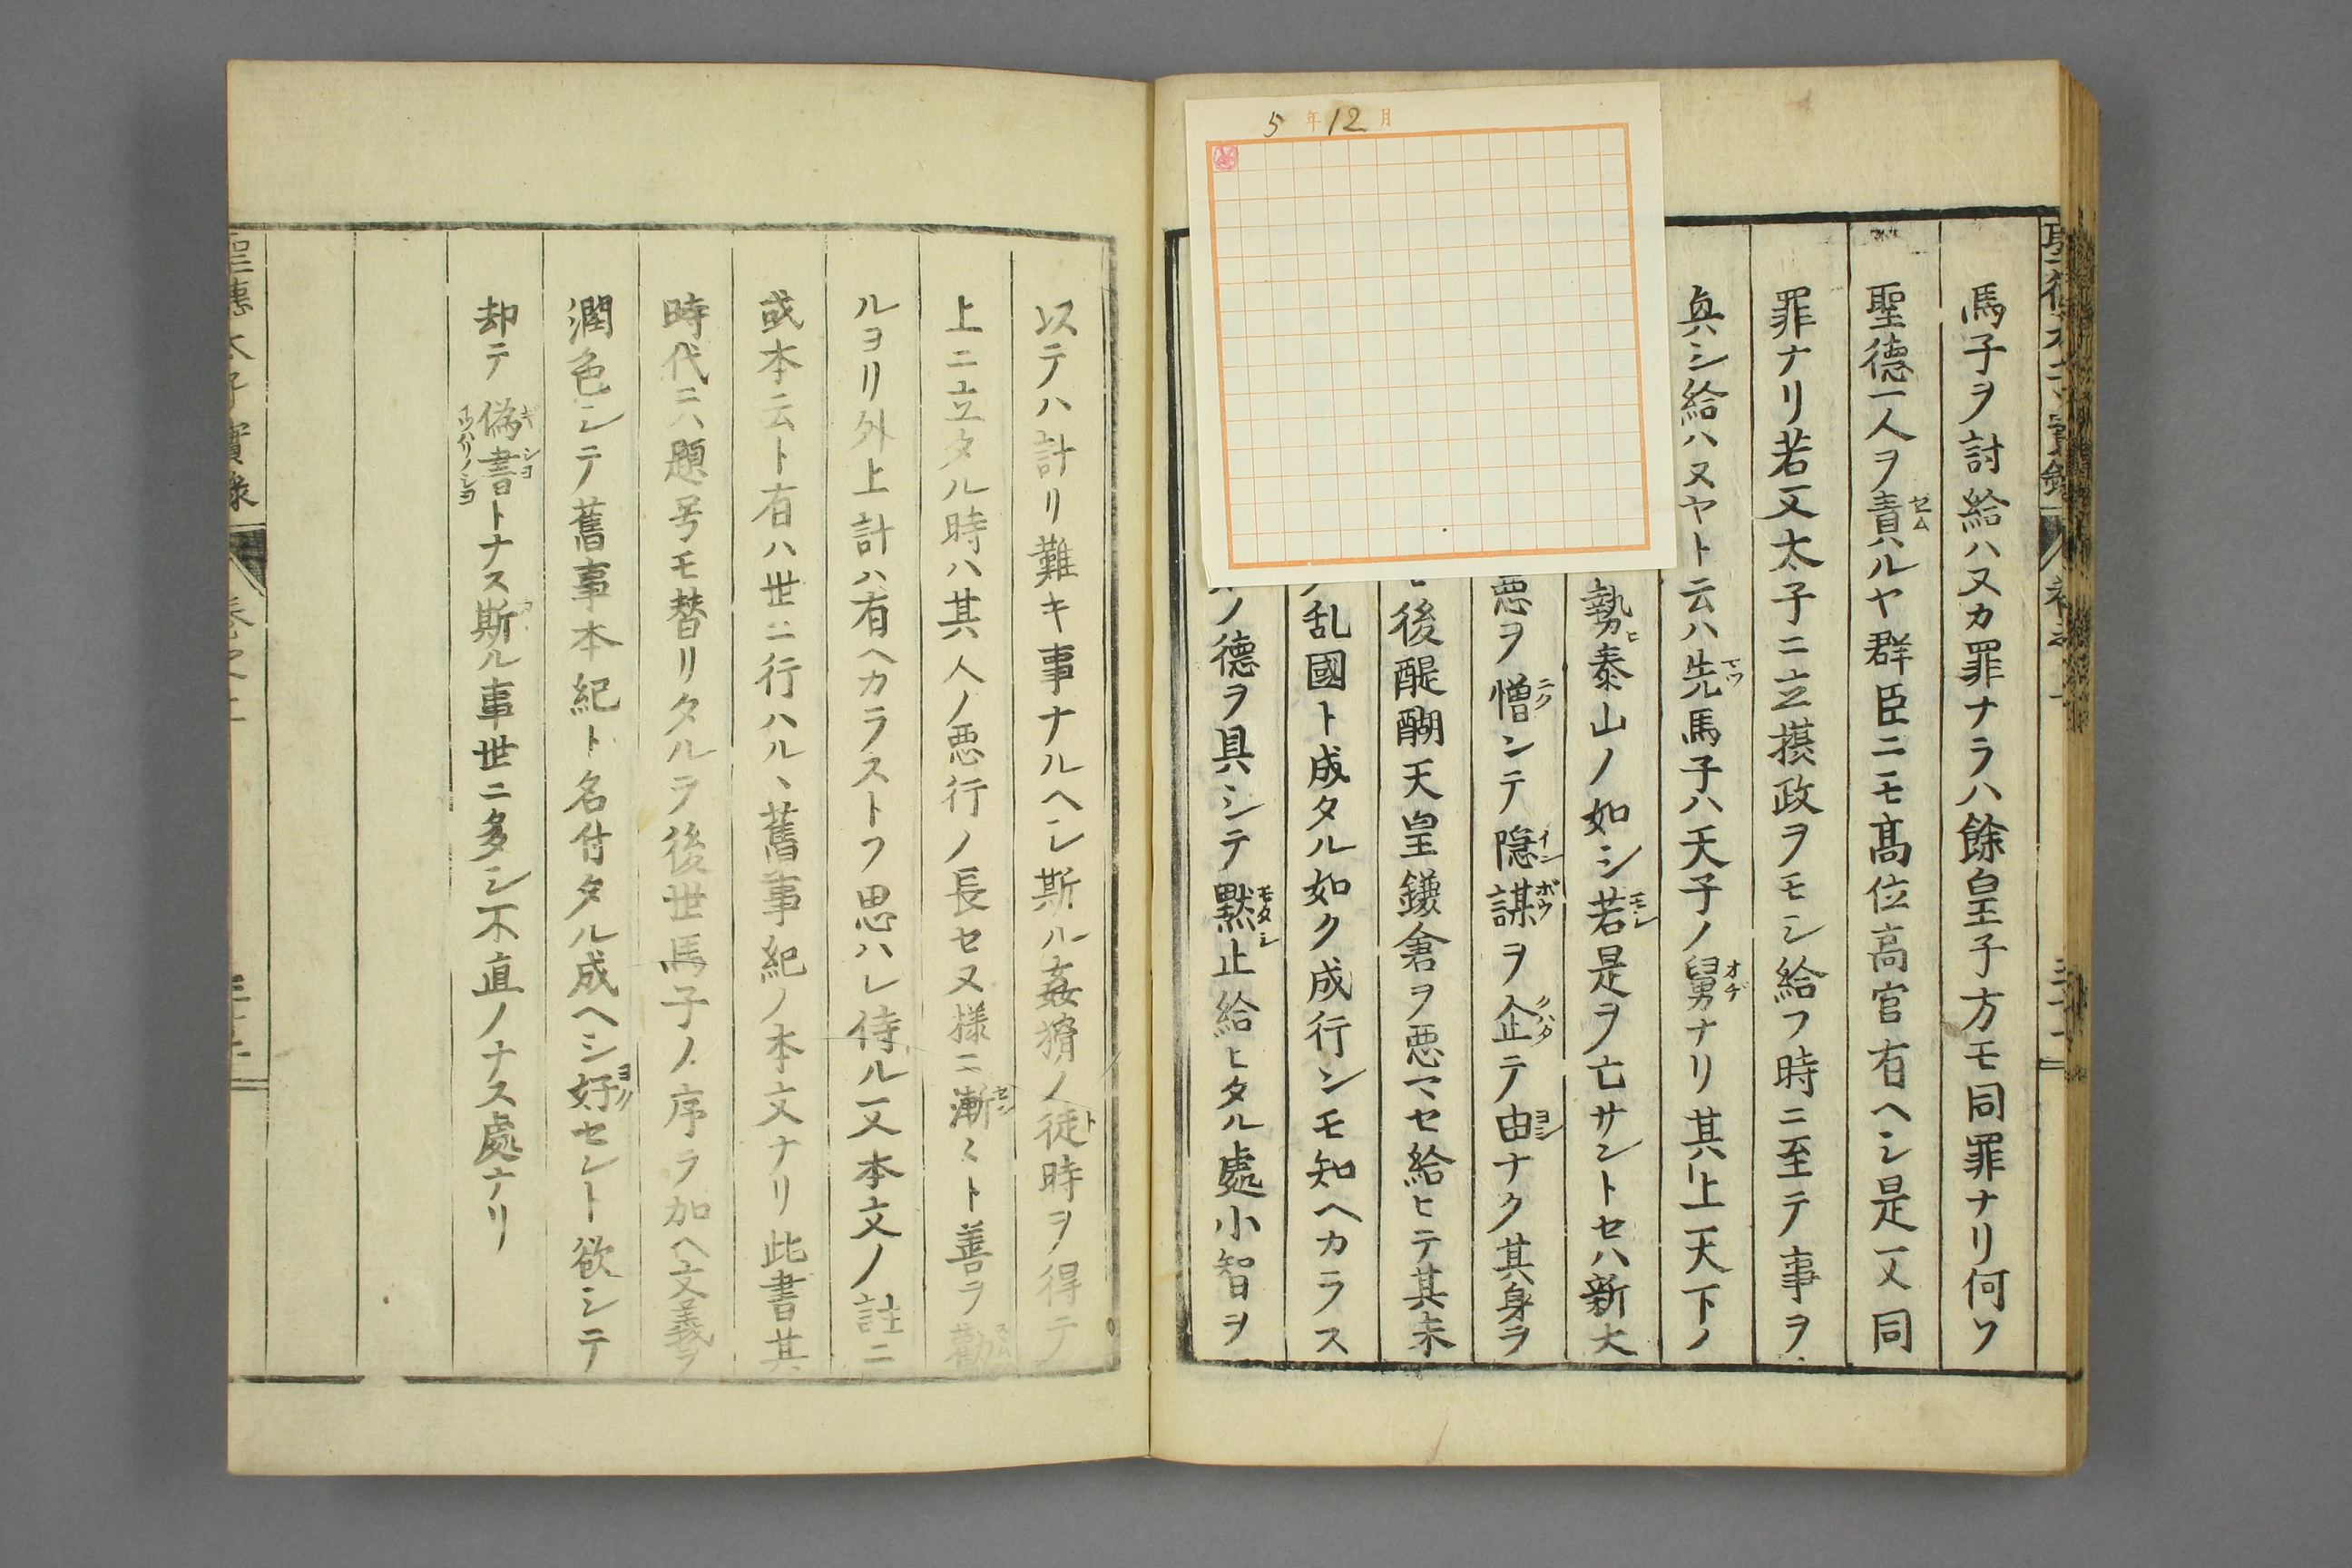 5年12月
馬子ヲ討給ハヌカ罪ナラハ餘皇子方モ同罪ナリ何ソ
聖德一人ヲ責ルヤ群臣ニモ髙位高官有ヘシ是又同
罪ナリ若又太子ニ立摂政ヲモシ給フ時ニ至テ事ヲ
具シ給ハヌヤト云ハ先馬子ハ天子ノ舅ナリ其上天下ノ
勢泰山ノ如シ若是ヲ亡サントセハ新大
悪ヲ憎ンテ隠謀ヲ企テ由ナク其身ヲ
後醍醐天皇鎌倉ヲ悪マセ給ヒテ其末
乱國ト成タル如ク成行ンモ知ヘカラス
ノ德ヲ具シテ黙止給ヒタル處小智ヲ
以テハ計リ難キ事ナルヘシ斯ル姦猾ノ徒時ヲ得テ
上ニ立タル時ハ其人ノ悪行ノ長セヌ様ニ漸〻ト善ヲ勸
ルヨリ外上計ハ有ヘカラストソ思ハレ侍ル又本文ノ註ニ
或本云ト有ハ世ニ行ハル、舊事紀ノ本文ナリ此書其
時代ニハ題号モ替リタルヲ後世馬子ノ序ヲ加ヘ文義ヲ
潤色シテ舊事本紀ト名付タル成ヘシ好セント欲シテ
却テ偽書トナス斯ル事世ニ多シ不直ノナス處ナリ
聖德太子實錄 卷之二